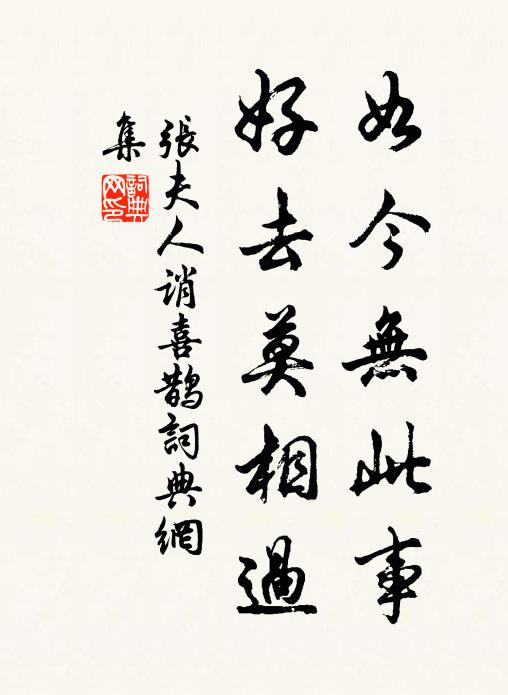 如今無此事
好去莫相過
張夫人誚喜鵲詞典網
集
詞典網印